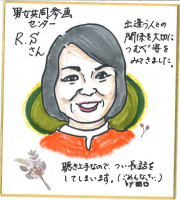 男女共同参画
センター
R.Sさん
出逢う人との
関係を大切に
つむぐ姿を
みてきました。
聴き上手なので、つい長話を
してしまいます。(ごめんなさい。)
by